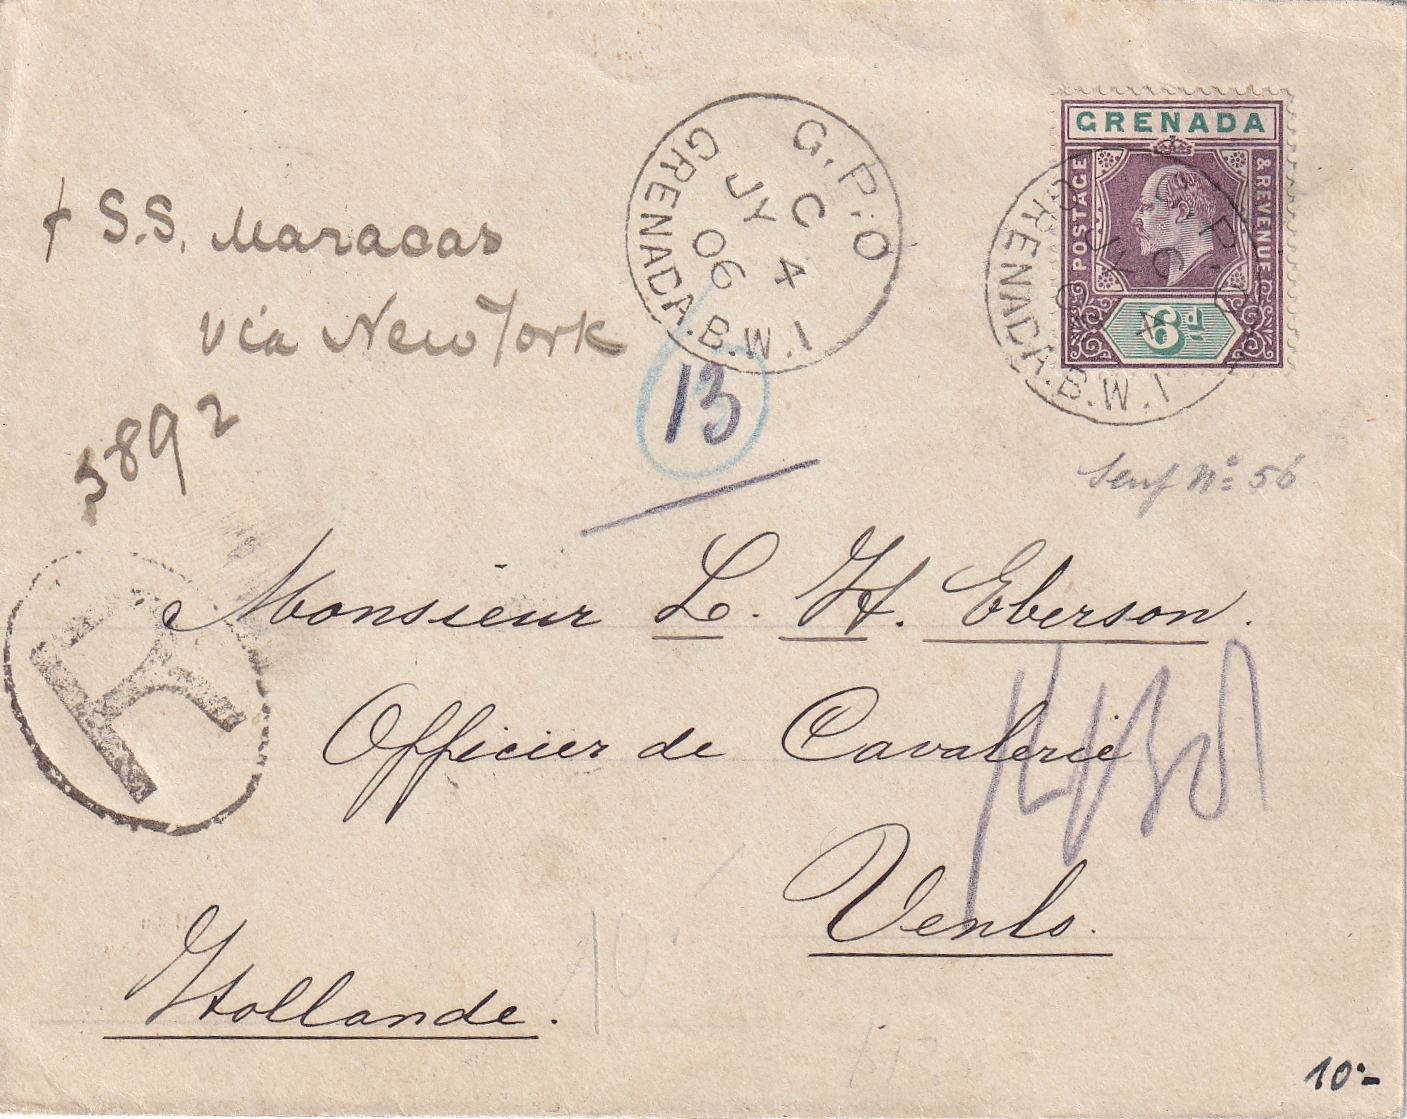 GRENADA
POSTAGE
& REVENUE
6d
G.P.O
C
JY 4
06
GRENADA.B.W.I
G.P.O
GRENADA.B.W.I
S.S. Maracas
via New York
13
5892
Senf No 56
R
Monsieur L. H. Eberson.
Officier de Cavalerie
Venlo.
Hollande.
10
10-